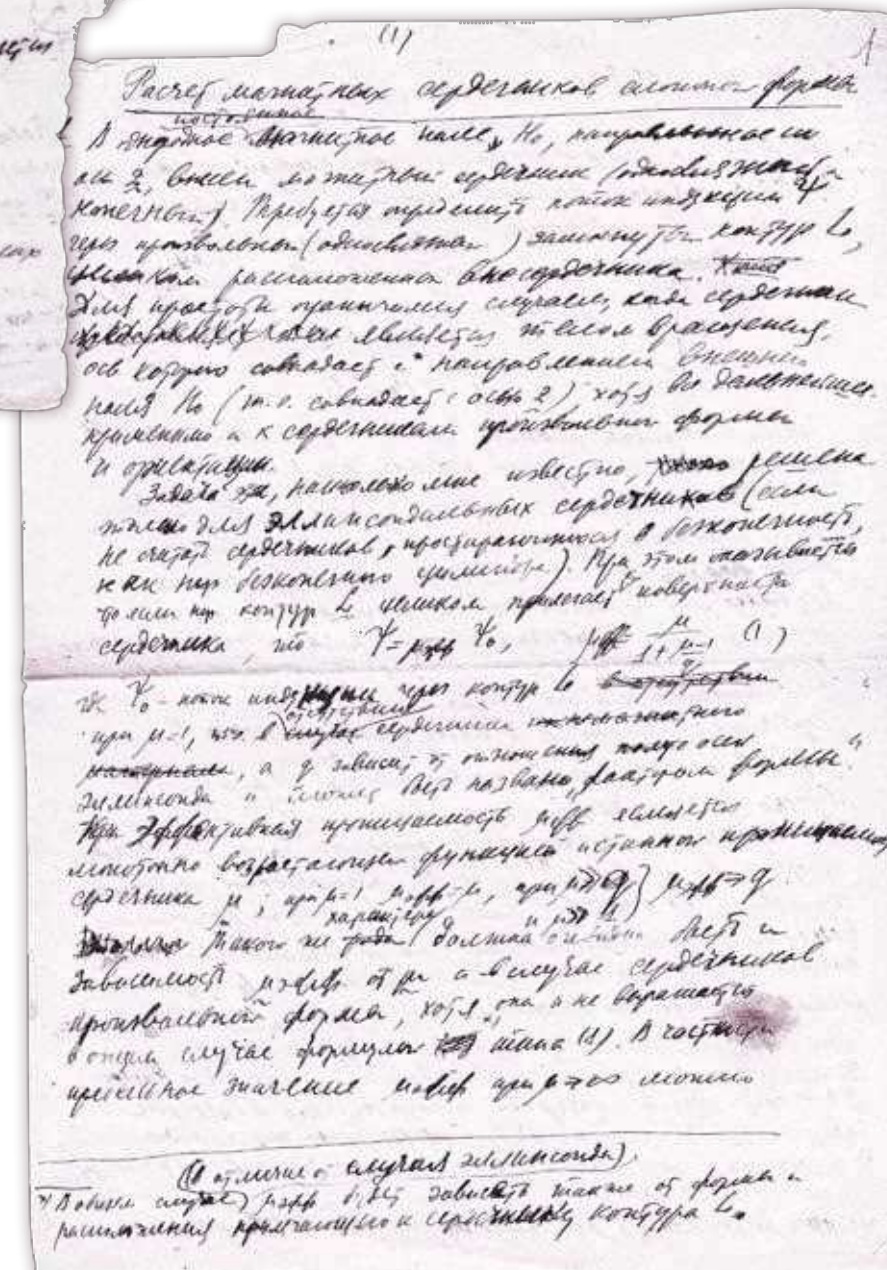 (1)
1
Расчет магнитных сердечников сложной формы
постоянное
В однородное магнитное поле H₀, направленное по
оси z, внесен магнитный сердечник (односвязный,
конечный). Требуется определить поток индукции Ψ
через произвольный (односвязный) замкнутый контур L,
целиком расположенный вне сердечника.
Для простоты ограничимся случаем, когда сердечник
является телом вращения,
ось которого совпадает с направлением внешнего
поля H₀ (т.е. совпадает с осью z) хотя все дальнейшее
применимо и к сердечникам произвольной формы
и ориентации.
Задача эта, насколько мне известно, решена
только для эллипсоидальных сердечников (если
не считать сердечников, простирающихся в бесконечность,
как нпр бесконечного цилиндра). При этом оказывается
что если контур L целиком прилегает к поверхности
сердечника, то Ψ = μэфф Ψ₀, μэфф = μ / 1 + (μ-1)/q (1)
где Ψ₀ - поток индукции через контур L в отсутствии
при μ=1, т.е. в отсутствии сердечника
материала, а q зависит от отношения полуосей
эллипсоида и может быть названо „фактором формы".
Эффективная проницаемость μэфф является
монотонно возрастающей функцией истинной проницаемости
сердечника μ; при μ=1 μэфф=μ, при μ≫q и μ≫1 } μэфф→q
Такого же характера должна быть и
зависимость μэфф от μ и в случае сердечников
произвольной формы, хотя она и не выражается
в общем случае формулой типа (1). В частности
предельное значение μэфф при μ→∞ можно
(в отличие от случая эллипсоида).
*) В общем случае μэфф будет зависеть также от формы и
расположения прилегающего к сердечнику контура L.